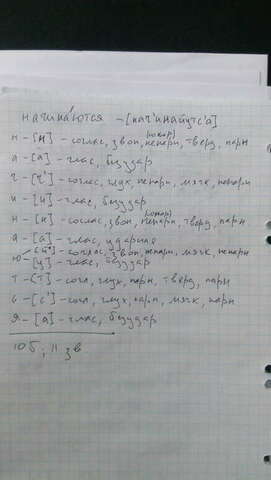 начинаются - [нач'инайутс'а]
н - [н] - соглас, звон, непарн, (сонор) тверд, парн
а - [а] - глас, безудар
ч - [ч'] - соглас, глух, непарн, мягк, непарн
и - [и] - глас, безудар
н - [н] - соглас, звон, непарн, (сонор) тверд, парн
а - [а] - глас, ударная
[й'] - соглас, звон, непарн, мягк, непарн
ю - [у] - глас, безудар
т - [т] - согл, глух, парн, тверд, парн
с - [с'] - согл, глух, парн, мягк, парн
я - [а] - глас, безудар
10 б; 11 зв